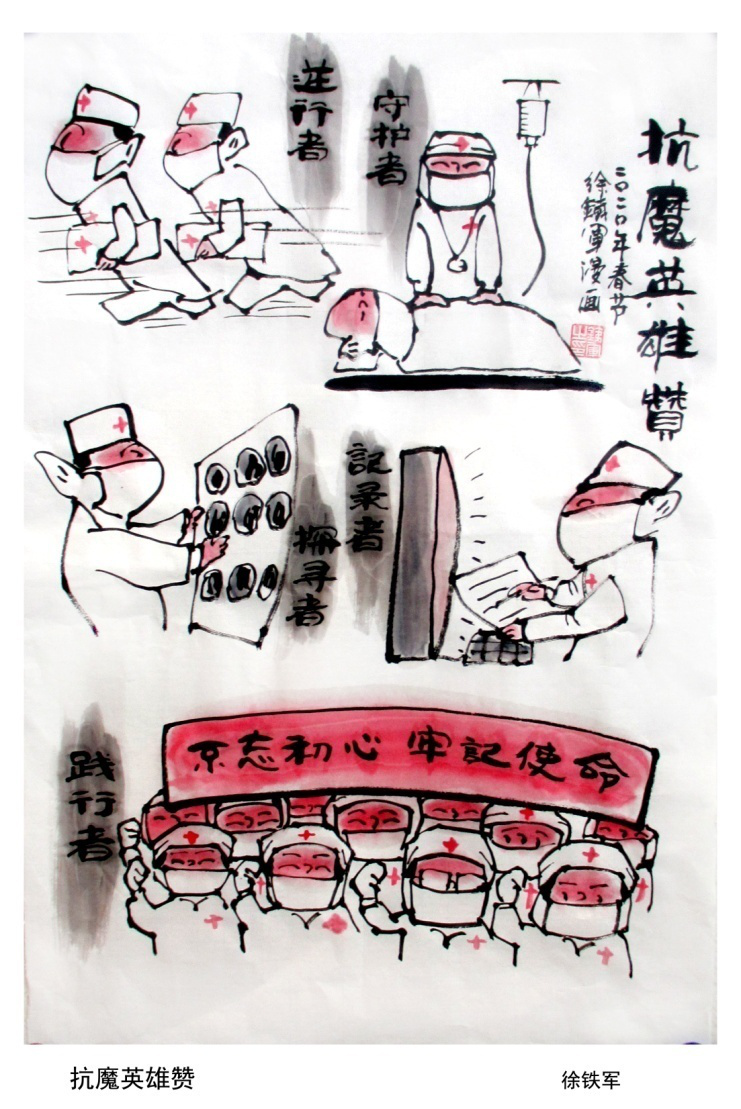 抗魔英雄贊
二〇二〇年春节
徐鐵軍漫画
逆行者
守护者
記录者
探寻者
践行者
不忘初心 牢記使命
抗魔英雄赞
徐铁军